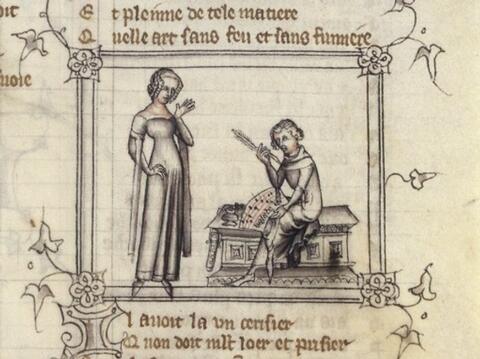 oit
Et pleinne de tele matiere
Quelle art sans feu et sans fumiere
uoie
Il auoit la un cerisier
Qu non doit mlt loer et prisier